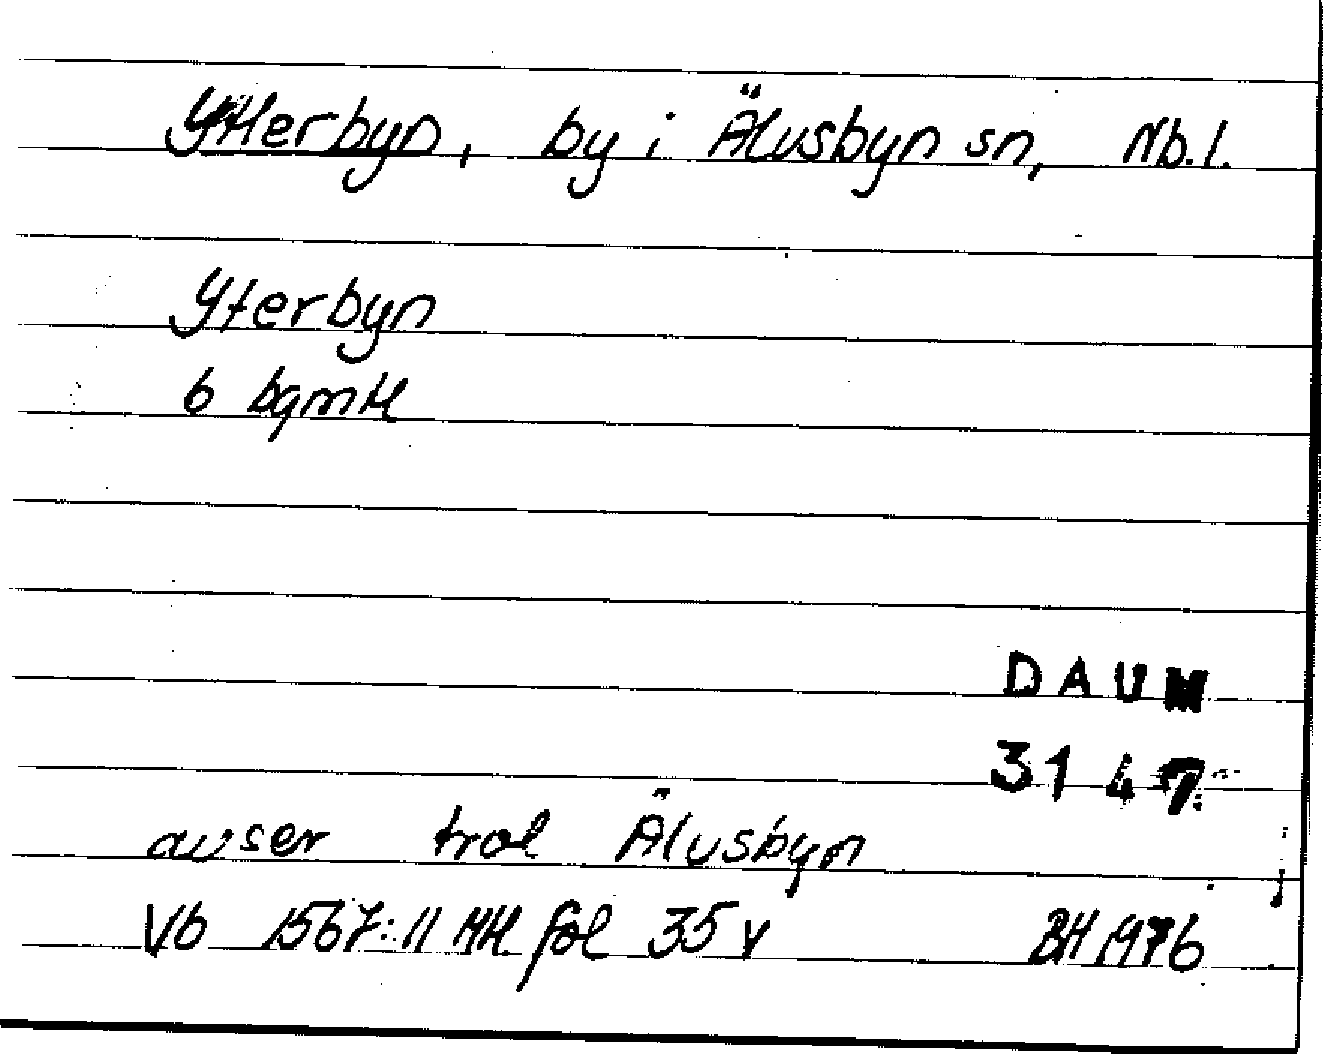 Ytterbyn, by i Älvsbyn sn, Nb.l.
Yterbyn
6 bgmtl
DAUM
3147
avser trol Älvsbyn
Vb 1567:11 Mtl fol 35 v BH 1976